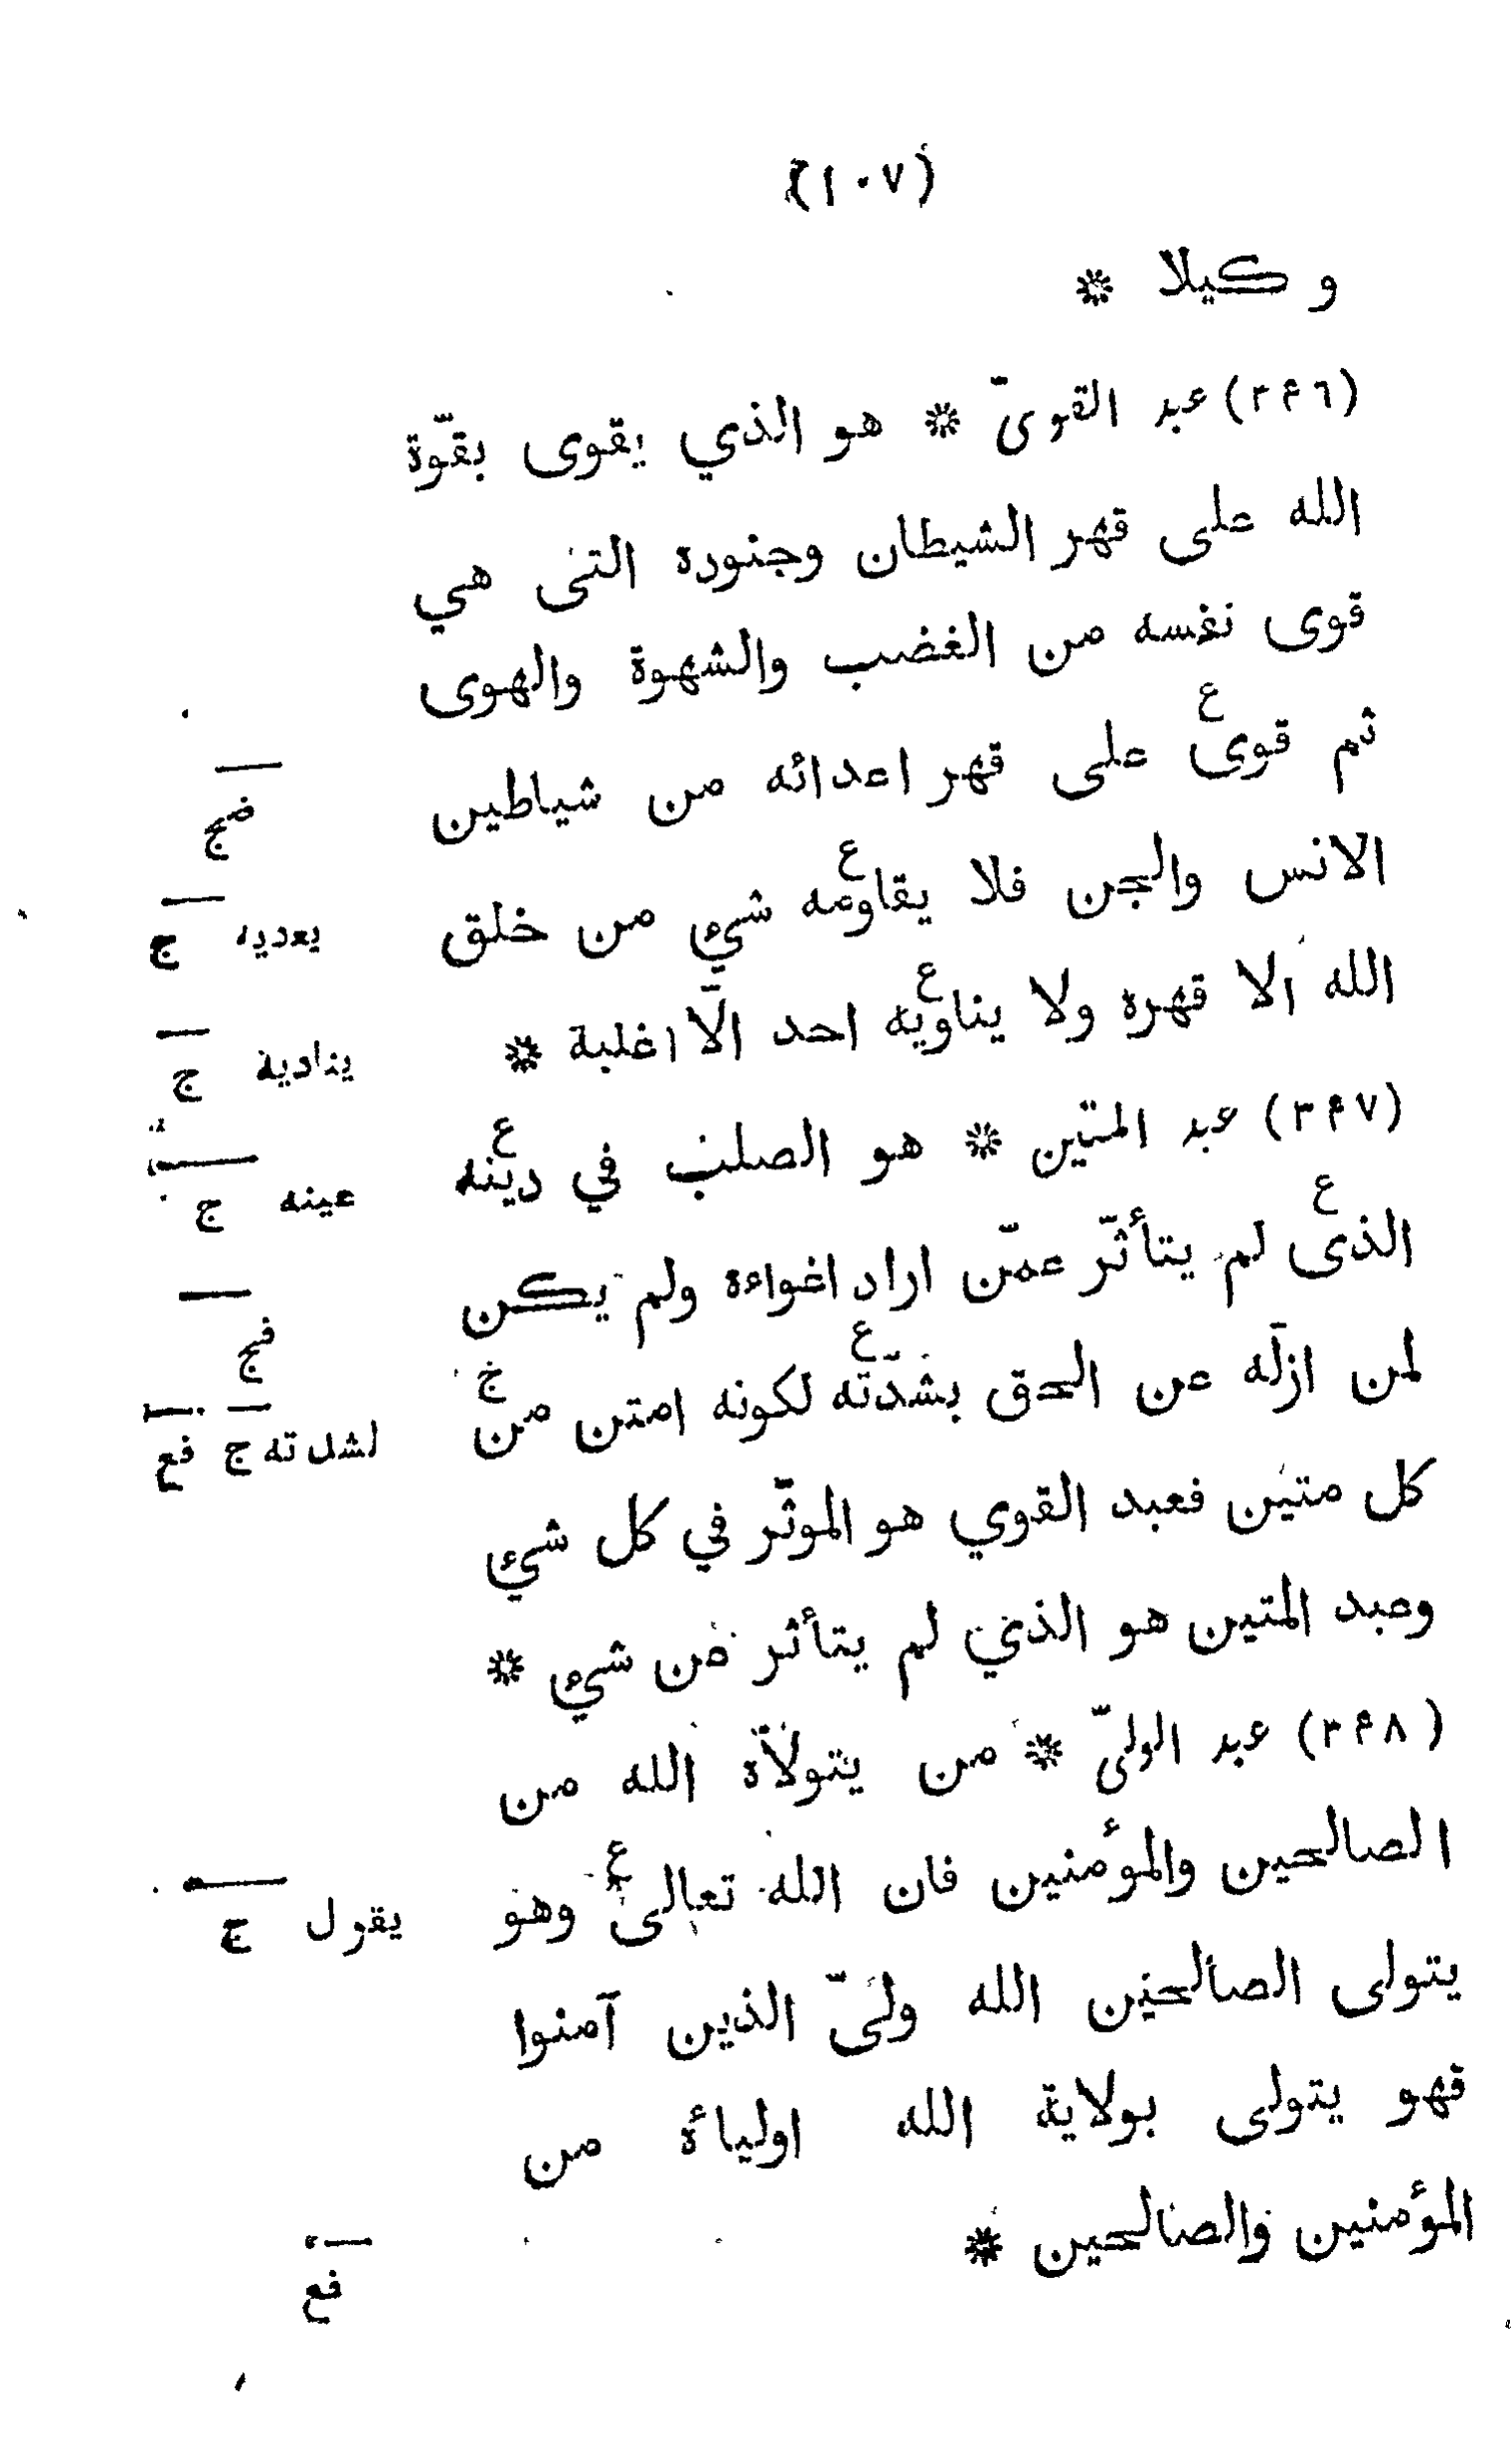 (١٠٧)
وكيلا *
(٣۴٦) عبد القوىّ * هو الذي يقوى بقوّة
الله على قهر الشيطان وجنوده التى هي
قوى نفسه من الغضب والشهوة والهوى
ثم قوى ع على قهر اعدائه من شياطين ضج
الانس والجن فلا يقاومه ع شيء من خلق يعديه ج
الله الا قهره ولا يناويه ع احد الّا اغلبة * ينادية ج
(٣۴٧) عبد المتين * هو الصلب في دينه ع عينه ج
الذى ع لم يتأثّر عمّن اراد اغواءه ولم يكن فج
لمن ازلّه عن الحق بشدّته ع لكونه امتن من خ لشدته ج فع
كل متين فعبد القوي هو الموثّر في كل شيء
وعبد المتين هو الذي لم يتأثر من شيء *
(٣۴٨) عبد الولىّ * من يتولاّه الله من
الصالحين والمؤمنين فان الله تعالى ع وهو يقول ج
يتولى الصالحين الله ولىّ الذين آمنوا
فهو يتولى بولاية الله اولياءه من
المؤمنين والصالحين * فع